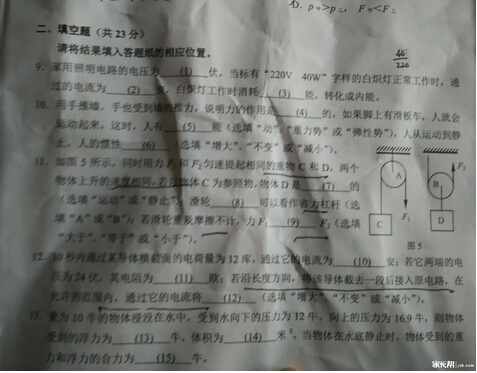 D. p甲>p乙，F甲<F乙
二、填空题（共 23 分）
请将结果填入答题纸的相应位置。
40/220
9、家用照明电路的电压为 (1) 伏，当标有“220V 40W”字样的白炽灯正常工作时，通
过的电流为 (2) 安，白炽灯工作时消耗 (3) 能，转化成内能。
10、用手推墙，手也受到墙的推力，说明力的作用是 (4) 的，如果脚上有滑板车，人就会
运动起来，这时，人有 (5) 能（选填“动”、“重力势”或“弹性势”），人从运动到静
止，人的惯性 (6) （选填“增大”、“不变”或“减小”）。
11、如图 5 所示，同时用力 F₁和 F₂匀速提起相同的重物 C 和 D，两个
物体上升的速度相同，若以物体 C 为参照物，物体 D 是 (7) 的
（选填“运动”或“静止”）；滑轮 (8) 可以看作省力杠杆（选
填“A”或“B”）；若滑轮重及摩擦不计，力 F₁ (9) F₂（选填
“大于”、“等于”或“小于”）。
A
B
F₁
F₂
C
D
图 5
12、10 秒内通过某导体横截面的电荷量为 12 库，通过它的电流为 (10) 安；若它两端的电
压为 24 伏，其电阻为 (11) 欧；若沿长度方向，将该导体截去一段后接入原电路，在
允许的范围内，通过它的电流将 (12) （选填“增大”、“不变”或“减小”）。
13、重为 10 牛的物体浸没在水中，受到水向下的压力为 12 牛，向上的压力为 16.9 牛，则物体
受到的浮力为 (13) 牛，体积为 (14) 米³。当物体在水底静止时，物体受到的重
力和浮力的合力为 (15) 牛。
家长帮 jzb.com